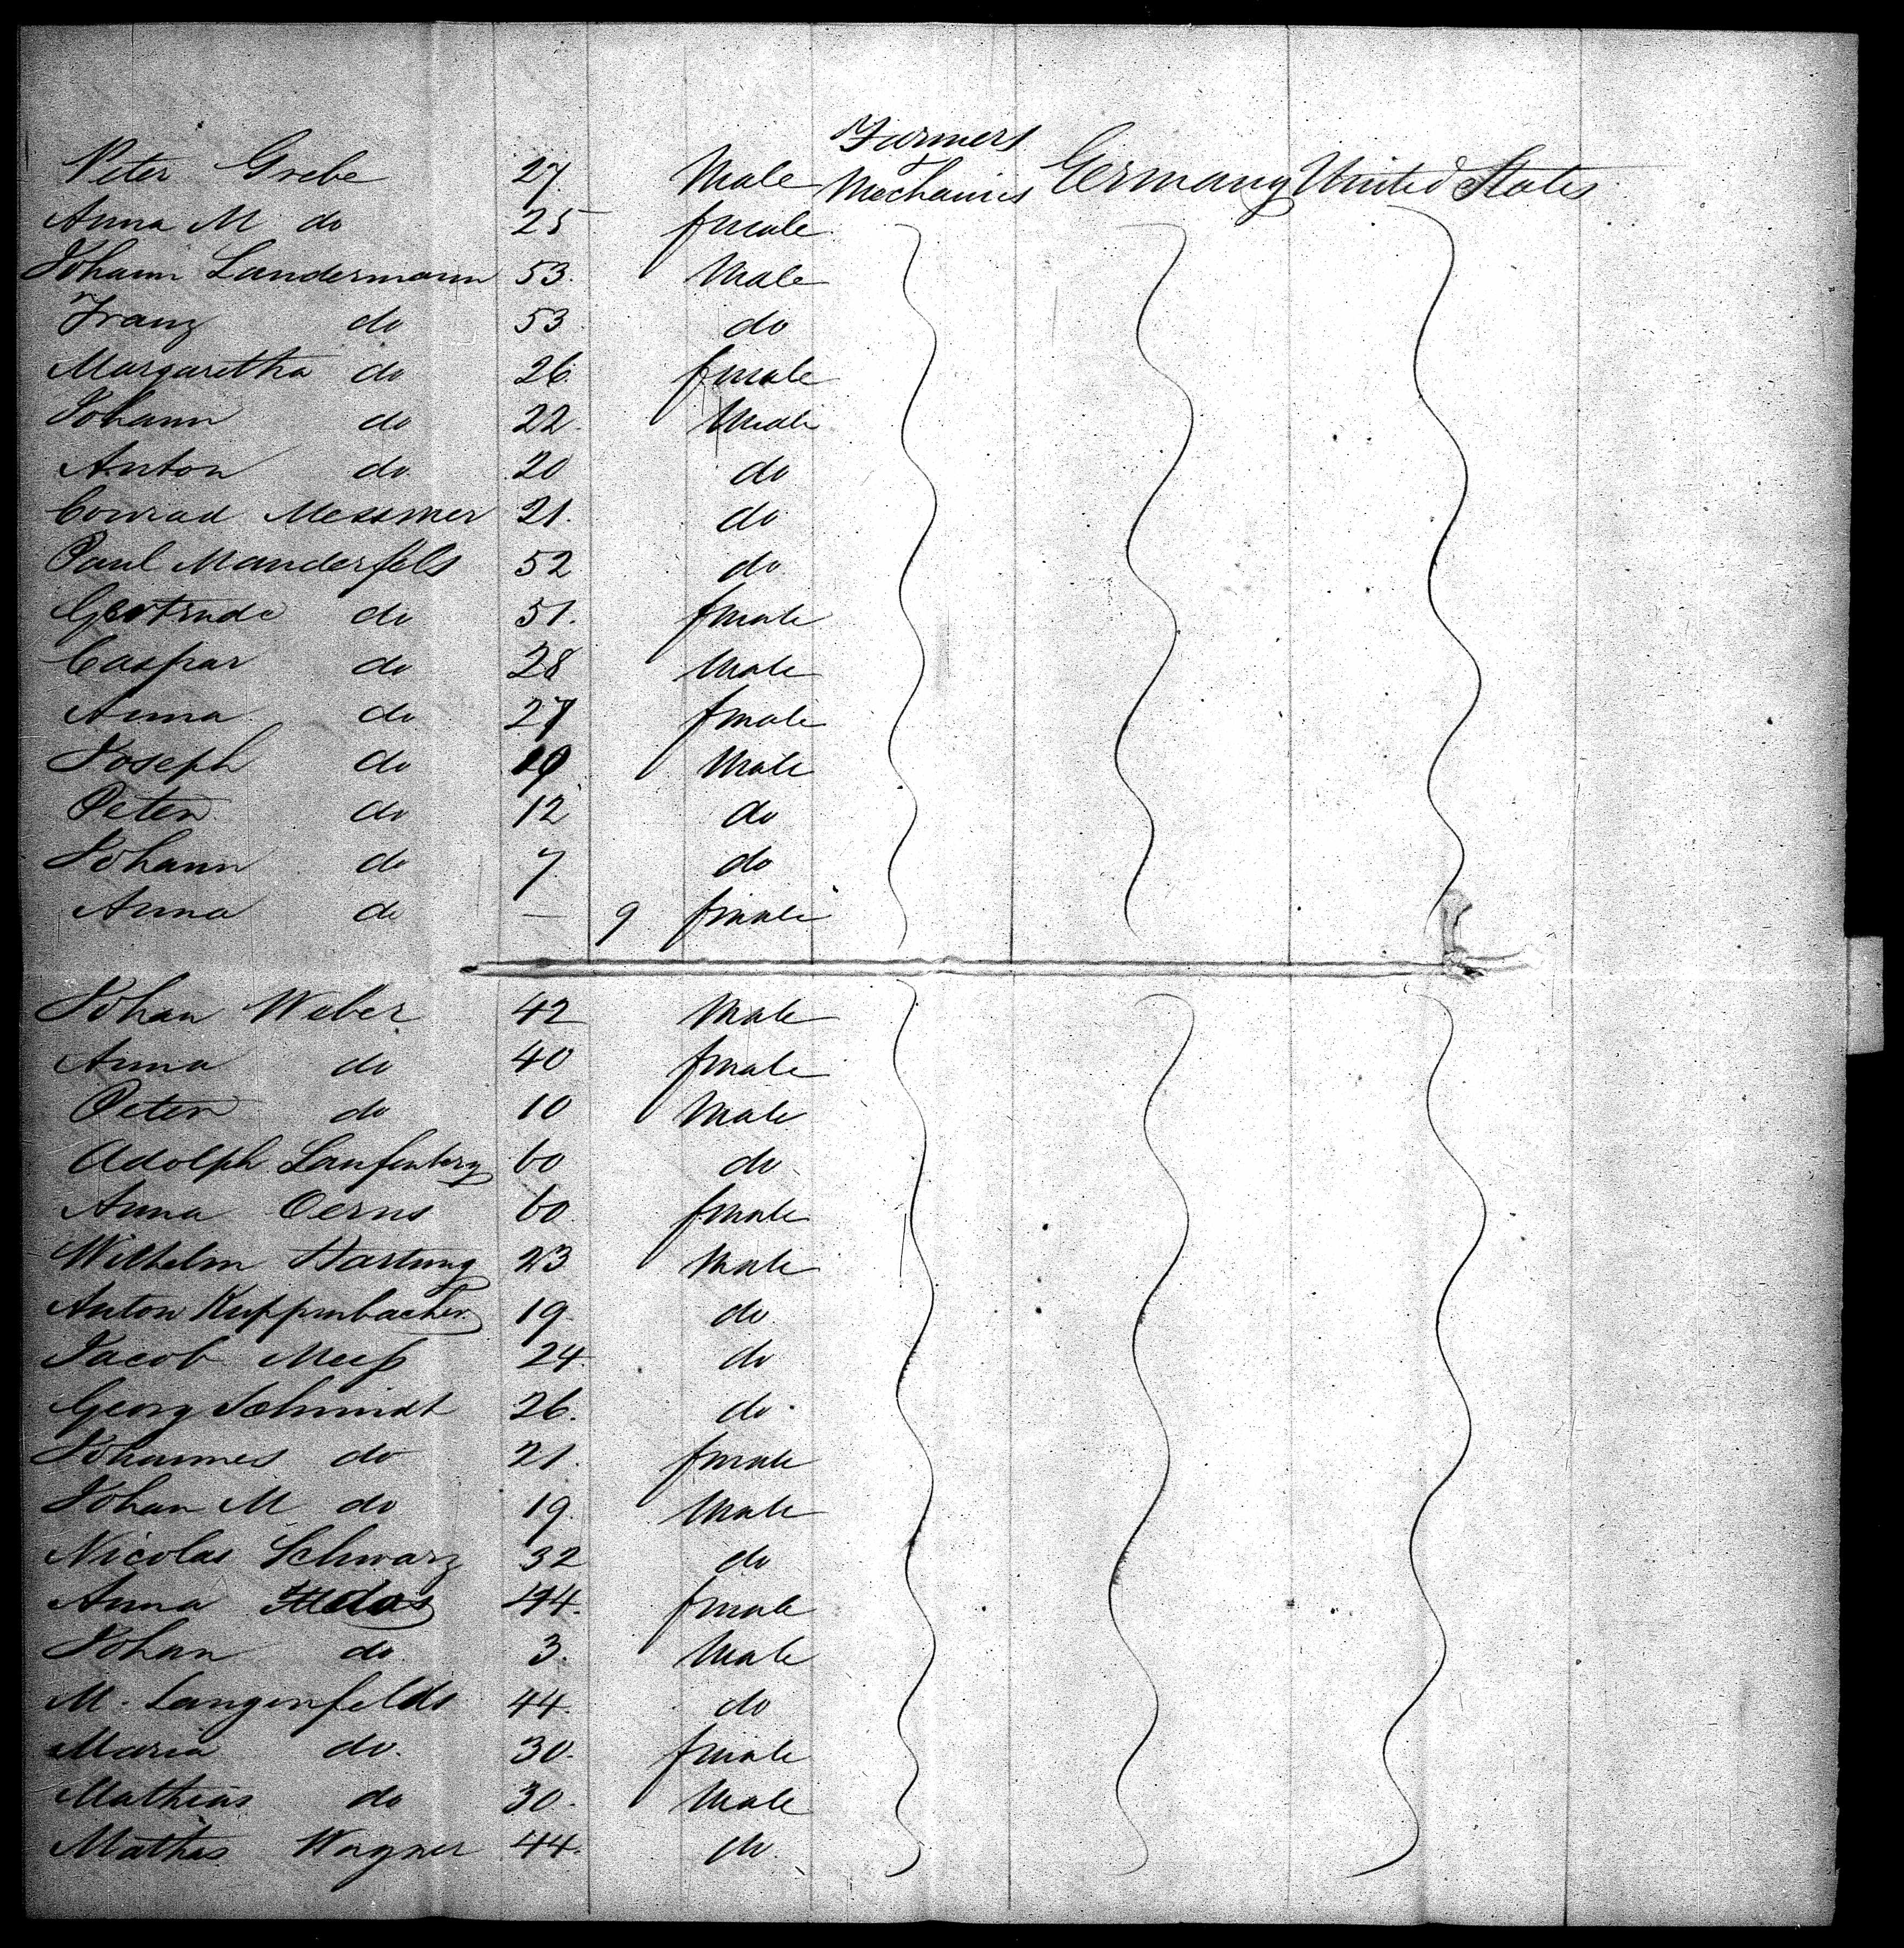 Farmers
Peter Grebe 27. Male Mechanics Germany United States
Anna M do 25 female
Johann Landermann 53. Male
Franz do 53 do
Margaretha do 26. female
Johann do 22. Male
Anton do 20 do
Conrad Messmer 21. do
Paul Manderfels 52 do
Gertrude do 51. female
Caspar do 28 Male
Anna do 27 female
Joseph do Male
Peter do 12 do
Johann do 7. do
Anna do — 9 female
Johan Weber 42 Male
Anna do 40 female
Peter do 10 Male
Adolph Laufenberg 60 do
Anna Oerns 60. female
Wilhelm Hartung 23 Male
Anton Kuppenbacher. 19. do
Jacob Meeß 24. do
Georg Schmidt 26. do.
Johannes do 21. female
Johan M do 19. Male
Nicolas Schwarz 32 do
Anna 44. female
Johan do. 3. Male
M. Langenfelds 44. do
Maria do. 30. female
Mathias do 30. Male
Mathas Wagner 44. do.